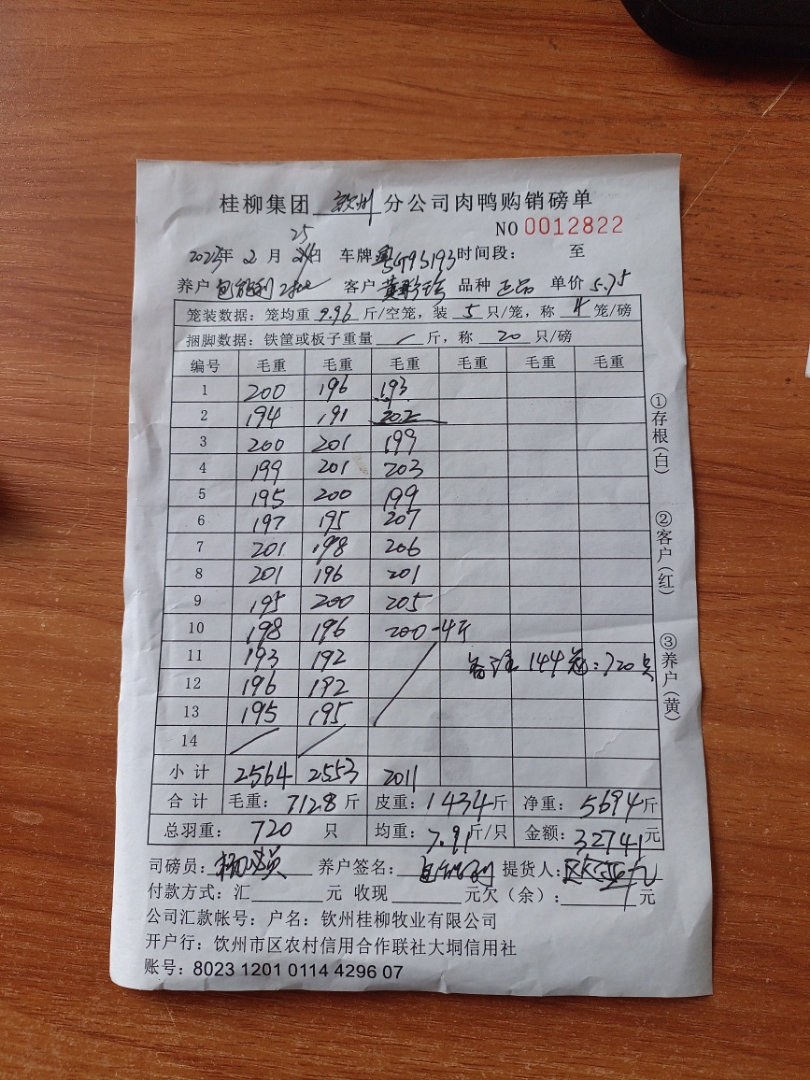 桂柳集团 钦州 分公司肉鸭购销磅单
NO 0012822
25
2023年 2 月 日 车牌 时间段： 至
养户 包能利 客户 黄 品种 正品 单价 5.75
笼装数据：笼均重 9.96 斤/空笼，装 5 只/笼，称 4 笼/磅
捆脚数据：铁筐或板子重量 / 斤，称 20 只/磅
编号 毛重 毛重 毛重 毛重 毛重 毛重
1 200 196 193
2 194 191 202
3 200 201 199
4 199 201 203
5 195 200 199
6 197 195 207
7 201 198 206
8 201 196 201
9 195 200 205
10 198 196 200-4斤
11 193 192 备注 144笼：720只
12 196 192
13 195 195
14
小计 2564 2553 2011
合计 毛重： 7128 斤 皮重： 1434 斤 净重： 5694 斤
总羽重： 720 只 均重： 7.91 斤/只 金额： 32741 元
司磅员： 养户签名： 包能利 提货人：
付款方式：汇 元 收现 元欠（余）： 元
公司汇款帐号： 户名：钦州桂柳牧业有限公司
开户行：钦州市区农村信用合作联社大垌信用社
账号：8023 1201 0114 4296 07
①存根（白）
②客户（红）
③养户（黄）